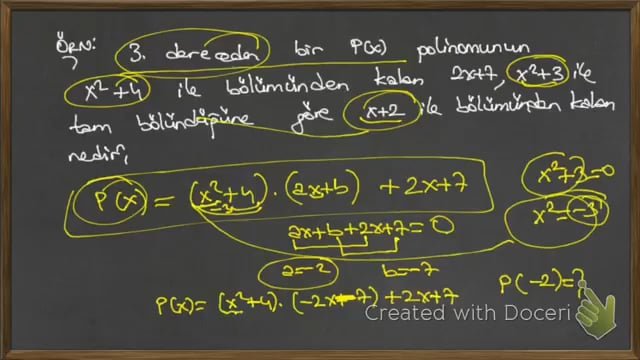 ÖRN: 3. dereceden bir P(x) polinomunun
x² + 4 ile bölümünden kalan 2x+7, x²+3 ile
tam bölündüğüne göre x+2 ile bölümünden kalan
nedir?
P(x) = (x²+4) . (ax+b) + 2x+7
x²+3=0
x²=-3
-3
ax+b+2x+7=0
a=-2 b=-7
P(-2)=?
P(x)= (x²+4) . (-2x-7) + 2x+7
Created with Doceri